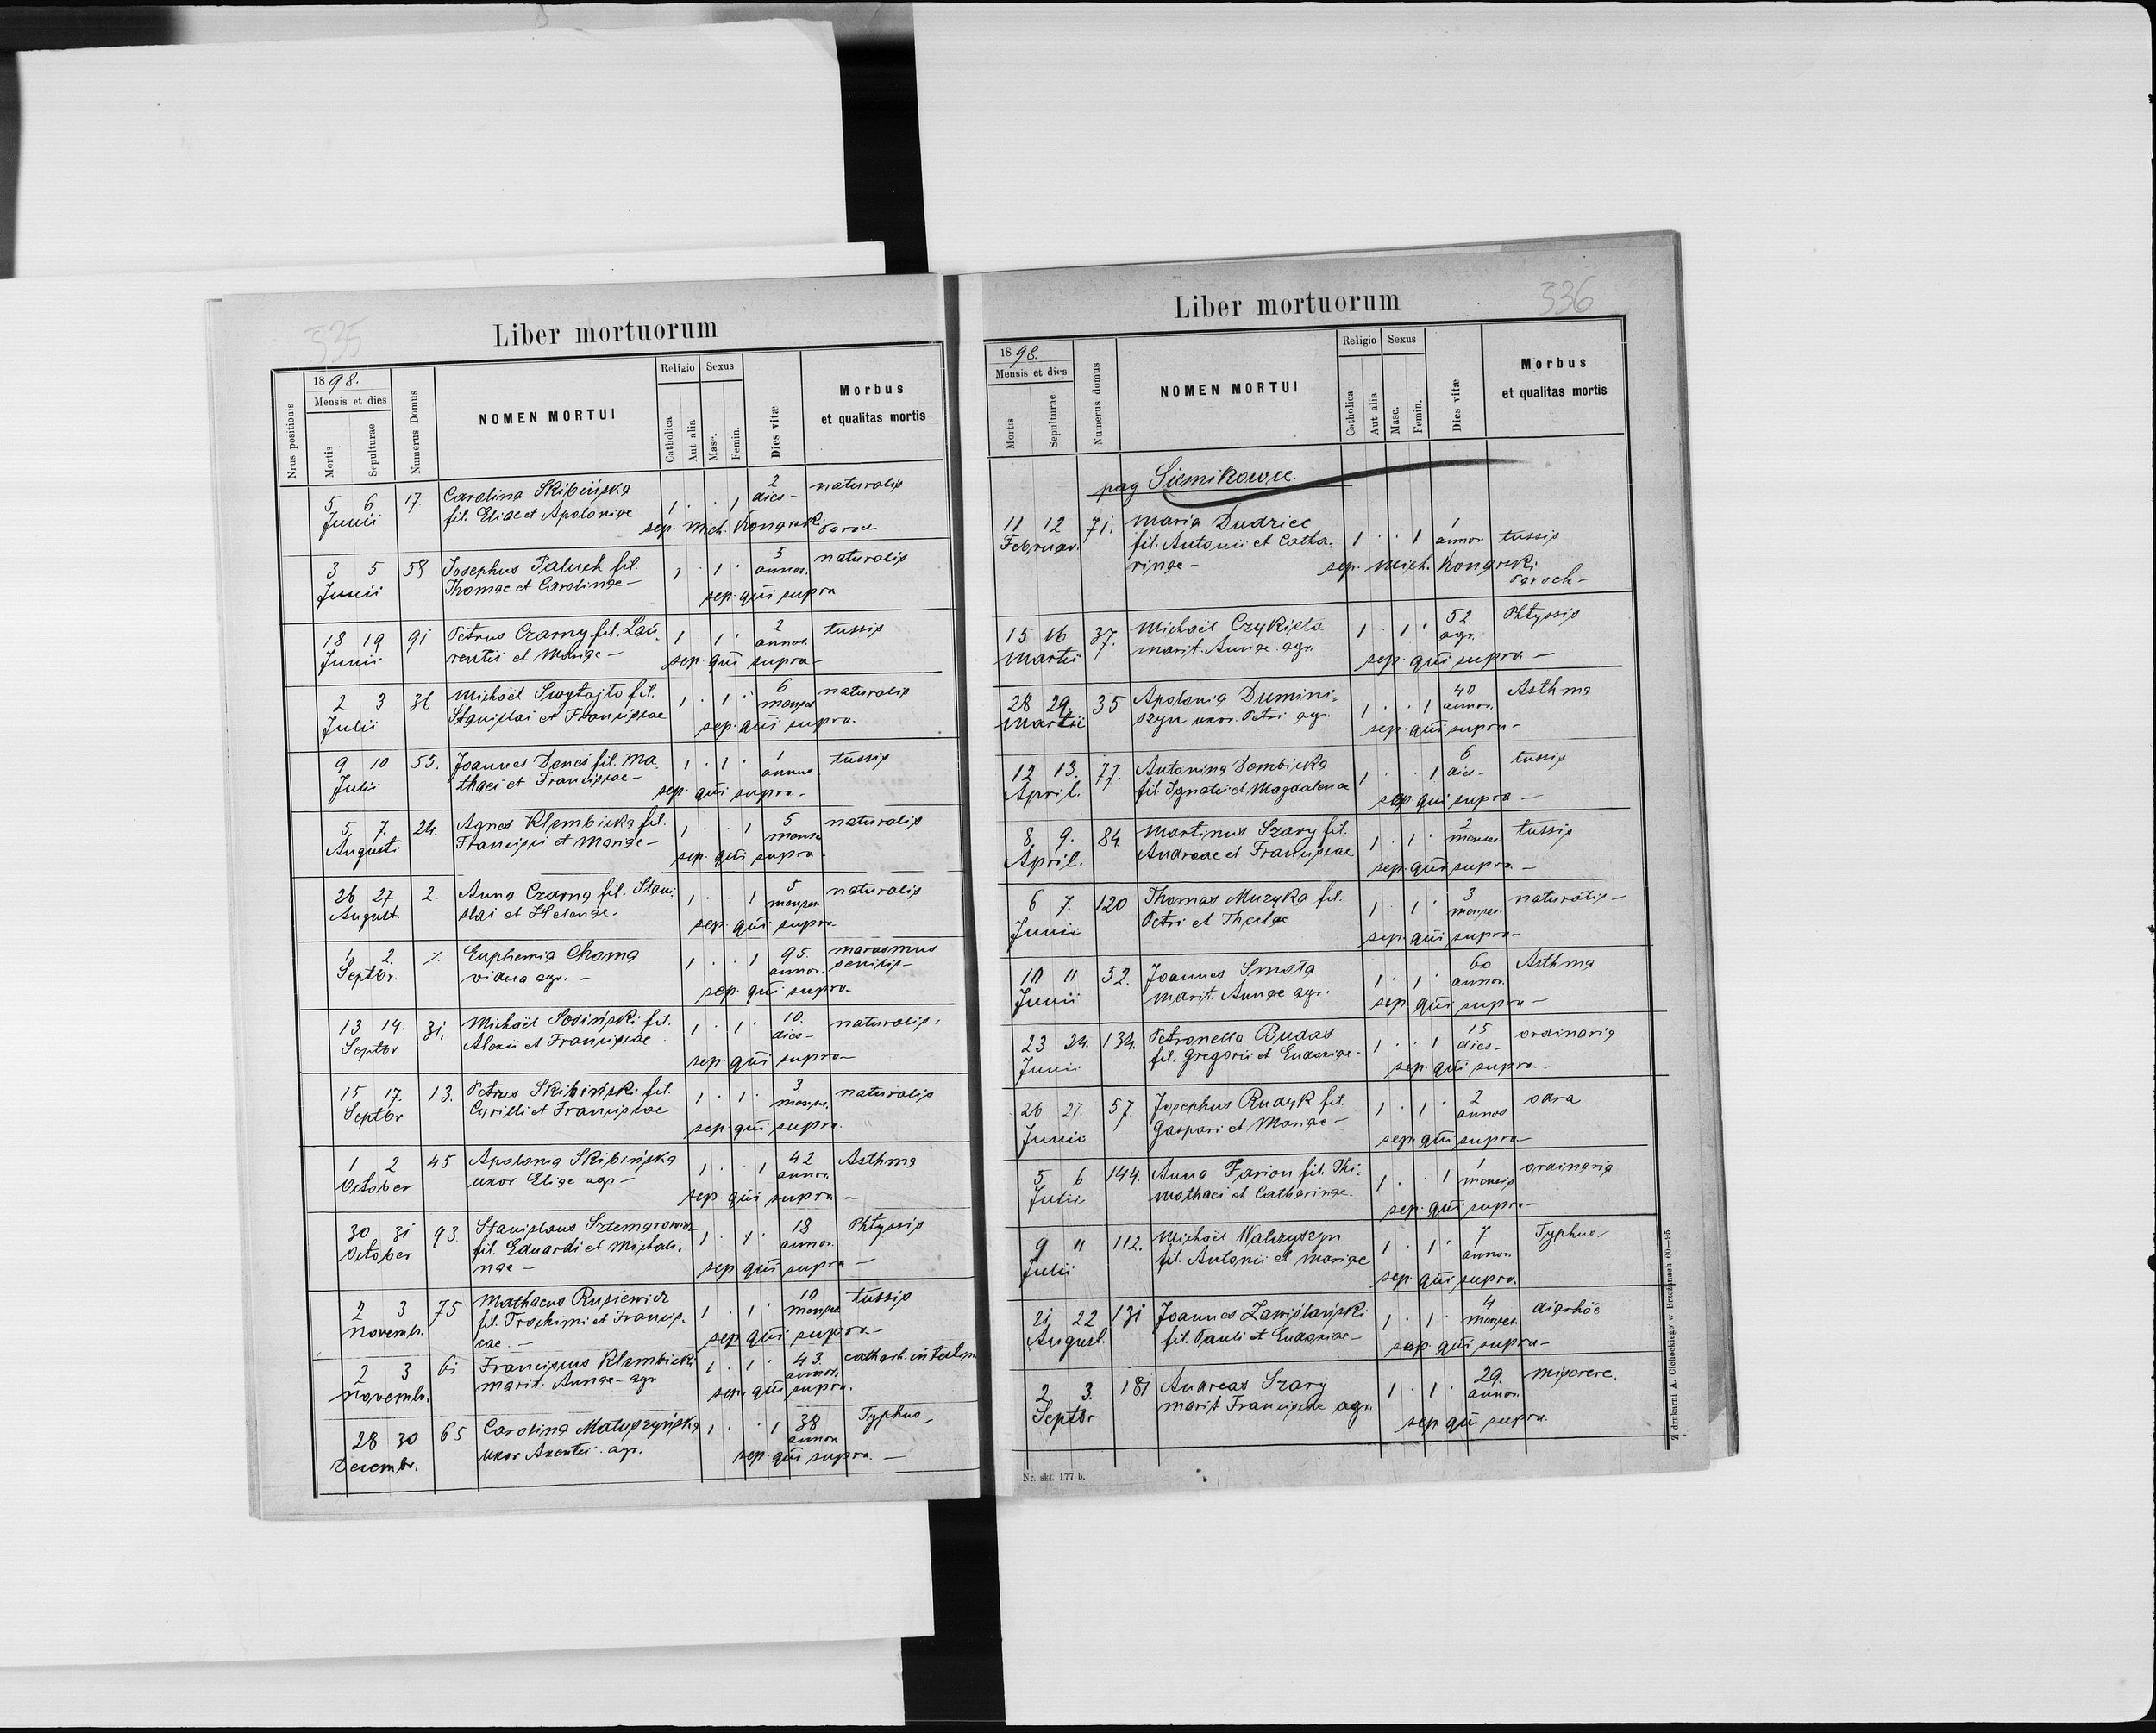 535
Liber mortuorum
Nrus positionis
1898.
Mensis et dies
Mortis
Sepulturae
Numerus Domus
NOMEN MORTUI
Religio
Sexus
Catholica
Aut alia
Masc.
Femin.
Dies vitæ
Morbus
et qualitas mortis
5 6 17. Carolina Skibińska 1 . . 1 2 naturalis
Junii fil. Eliae et Apoloniae dies -
sep. Mich. Kongrecki Paroch
3 5 58 Josephus Paluch fil. 1 . 1 . 3 naturalis
Junii Thomae et Carolinae - annor.
sep. qui supra
18 19 91 Petrus Czarny fil. Lau- 1 . 1 . 2 tussis
Junii rentii et Mariae - annor.
sep. qui supra -
2 3 36 Michaël Swytajło fil. 1 . 1 . 6 naturalis
Julii Stanislai et Franciscae menses
sep. qui supra.
9 10 55. Joannes Deneś fil. Ma- 1 . 1 . 1 tussis
Julii thaei et Franciscae - annus
sep. qui supra -
5 7. 24. Agnes Klembicka fil. 1 . . 1 5 naturalis
Augusti Francisci et Mariae - menses
sep. qui supra -
26 27 2. Anna Czarna fil. Stani- 1 . . 1 5 naturalis
August. slai et Helenae - menses
sep. qui supra
1 2. /. Euphemia Choma 1 . . 1 95. marasmus
Septbr. vidua agr. - annor. senilis -
sep. qui supra
13 14. 31. Michaël Sosiński fil. 1 . 1 . 10. naturalis.
Septbr Alexii et Franciscae dies -
sep. qui supra -
15 17. 13. Petrus Skibiński fil. 1 . 1 . 3 naturalis
Septbr Cyrilli et Franciscae menses
sep. qui supra.
1 2 45 Apolonia Skibińska 1 . . 1 42 Asthma
October uxor Eliae agr - annor.
sep. qui supra -
30 31 93 Stanislaus Sztemarowicz 1 . 1 . 18 Phtyssis
October fil. Eduardi et Michali- annor.
nae - sep qui supra -
2 3 75 Mathaeus Rusiewicz 1 . 1 . 10 tussis
Novembr. fil. Trochimi et Francis- menses
cae. - sep. qui supra -
2 3 61 Franciscus Klembicki 1 . 1 . 43. cathарh. intestin
Novembr. marit. Annae - agr annor.
sep. qui supra.
28 30 65 Carolina Matuszyńska 1 . . 1 38 Typhus -
Decembr. uxor Axentii agr. annor
sep. qui supra. -
536
Liber mortuorum
1898.
Mensis et dies
Mortis
Sepulturae
Numerus domus
NOMEN MORTUI
Religio
Sexus
Catholica
Aut alia
Masc.
Femin.
Dies vitæ
Morbus
et qualitas mortis
pag. Siemikowce.
11 12 71. Maria Dudziec 1 . . 1 1 tussis
Februar. fil. Antonii et Catha- annor
rinae - sep. Mich. Kongrecki Paroch -
15 16 37. Michaël Czykieta 1 . 1 . 52. Phtyssis
Martii marit. Annae. agr. agr.
sep. qui supra -
28 29. 35 Apolonia Dumini- 1 . . 1 40 Asthma
Martii szyn uxor. Petri agr. annor.
sep. qui supra -
12 13. 77. Antonina Dembicka 1 . . 1 6 tussis
April. fil. Ignatii et Magdalenae dies -
sep. qui supra -
8 9. 84 Martinus Szary fil. 1 . 1 . 2 tussis
April. Andreae et Franciscae menses
sep. qui supra -
6 7. 120 Thomas Muzyka fil. 1 . 1 . 3 naturalis -
Junii Petri et Theclae menses.
sep. qui supra -
10 11 52. Joannes Smoła 1 . 1 . 60 Asthma
Junii marit. Annae agr. annor.
sep. qui supra -
23 24. 134. Petronella Budas 1 . . 1 15 ordinaria
Junii fil. Gregorii et Eudoxiae. dies -
sep. qui supra.
26 27. 57. Josephus Rudyk fil. 1 . 1 . 2 odra
Junio Gaspari et Mariae - annos
sep. qui supra -
5 6 144. Anna Farion fil. Thi- 1 . . 1 1 ordinaria
Julii mothaei et Catharinae. mensis
sep. qui supra -
9 11 112. Michaël Walczyszyn 1 . 1 . 7 Typhus -
Julii fil. Antonii et Mariae annor.
sep. qui supra.
21 22 131 Joannes Zawislański 1 . 1 . 4 diarhöe
August. fil. Pauli et Eudoxiae - menses.
sep. qui supra -
2 3. 181 Andreas Szary 1 . 1 . 29. miserere.
Septbr marit Franciscae agr. annor.
sep. qui supra.
Nr. skł. 177 b.
Z drukarni A. Cichockiego w Brzeżanach 60—95.